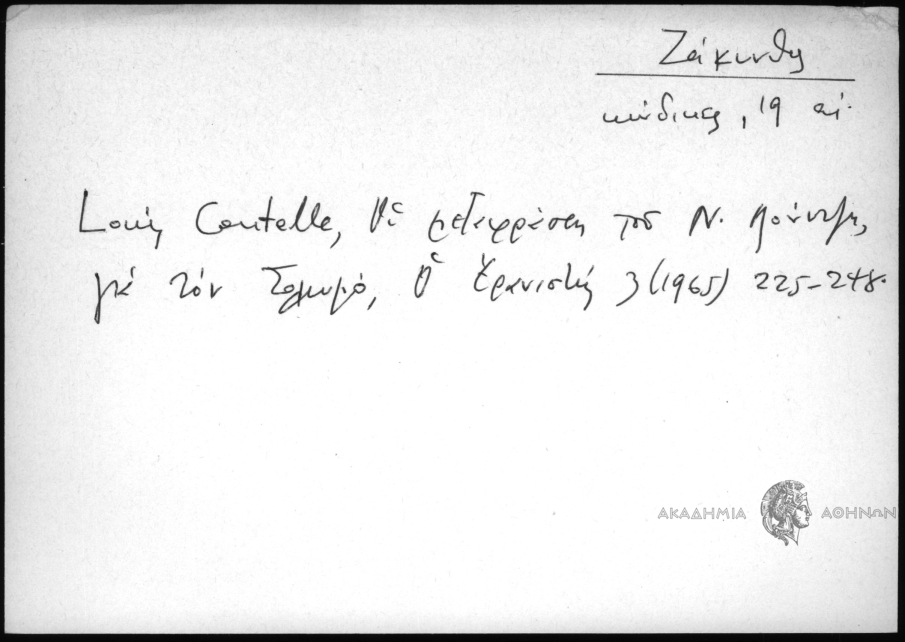 Ζάκυνθος
κώδικες, 19 αἰ.
Louis Coutelle, Οἱ μεταφράσεις τοῦ Ν. Λούντζη,
γιὰ τόν Σολωμό, Ὁ Ἐρανιστής 3 (1965) 225-248.
ΑΚΑΔΗΜΙΑ ΑΘΗΝΩΝ